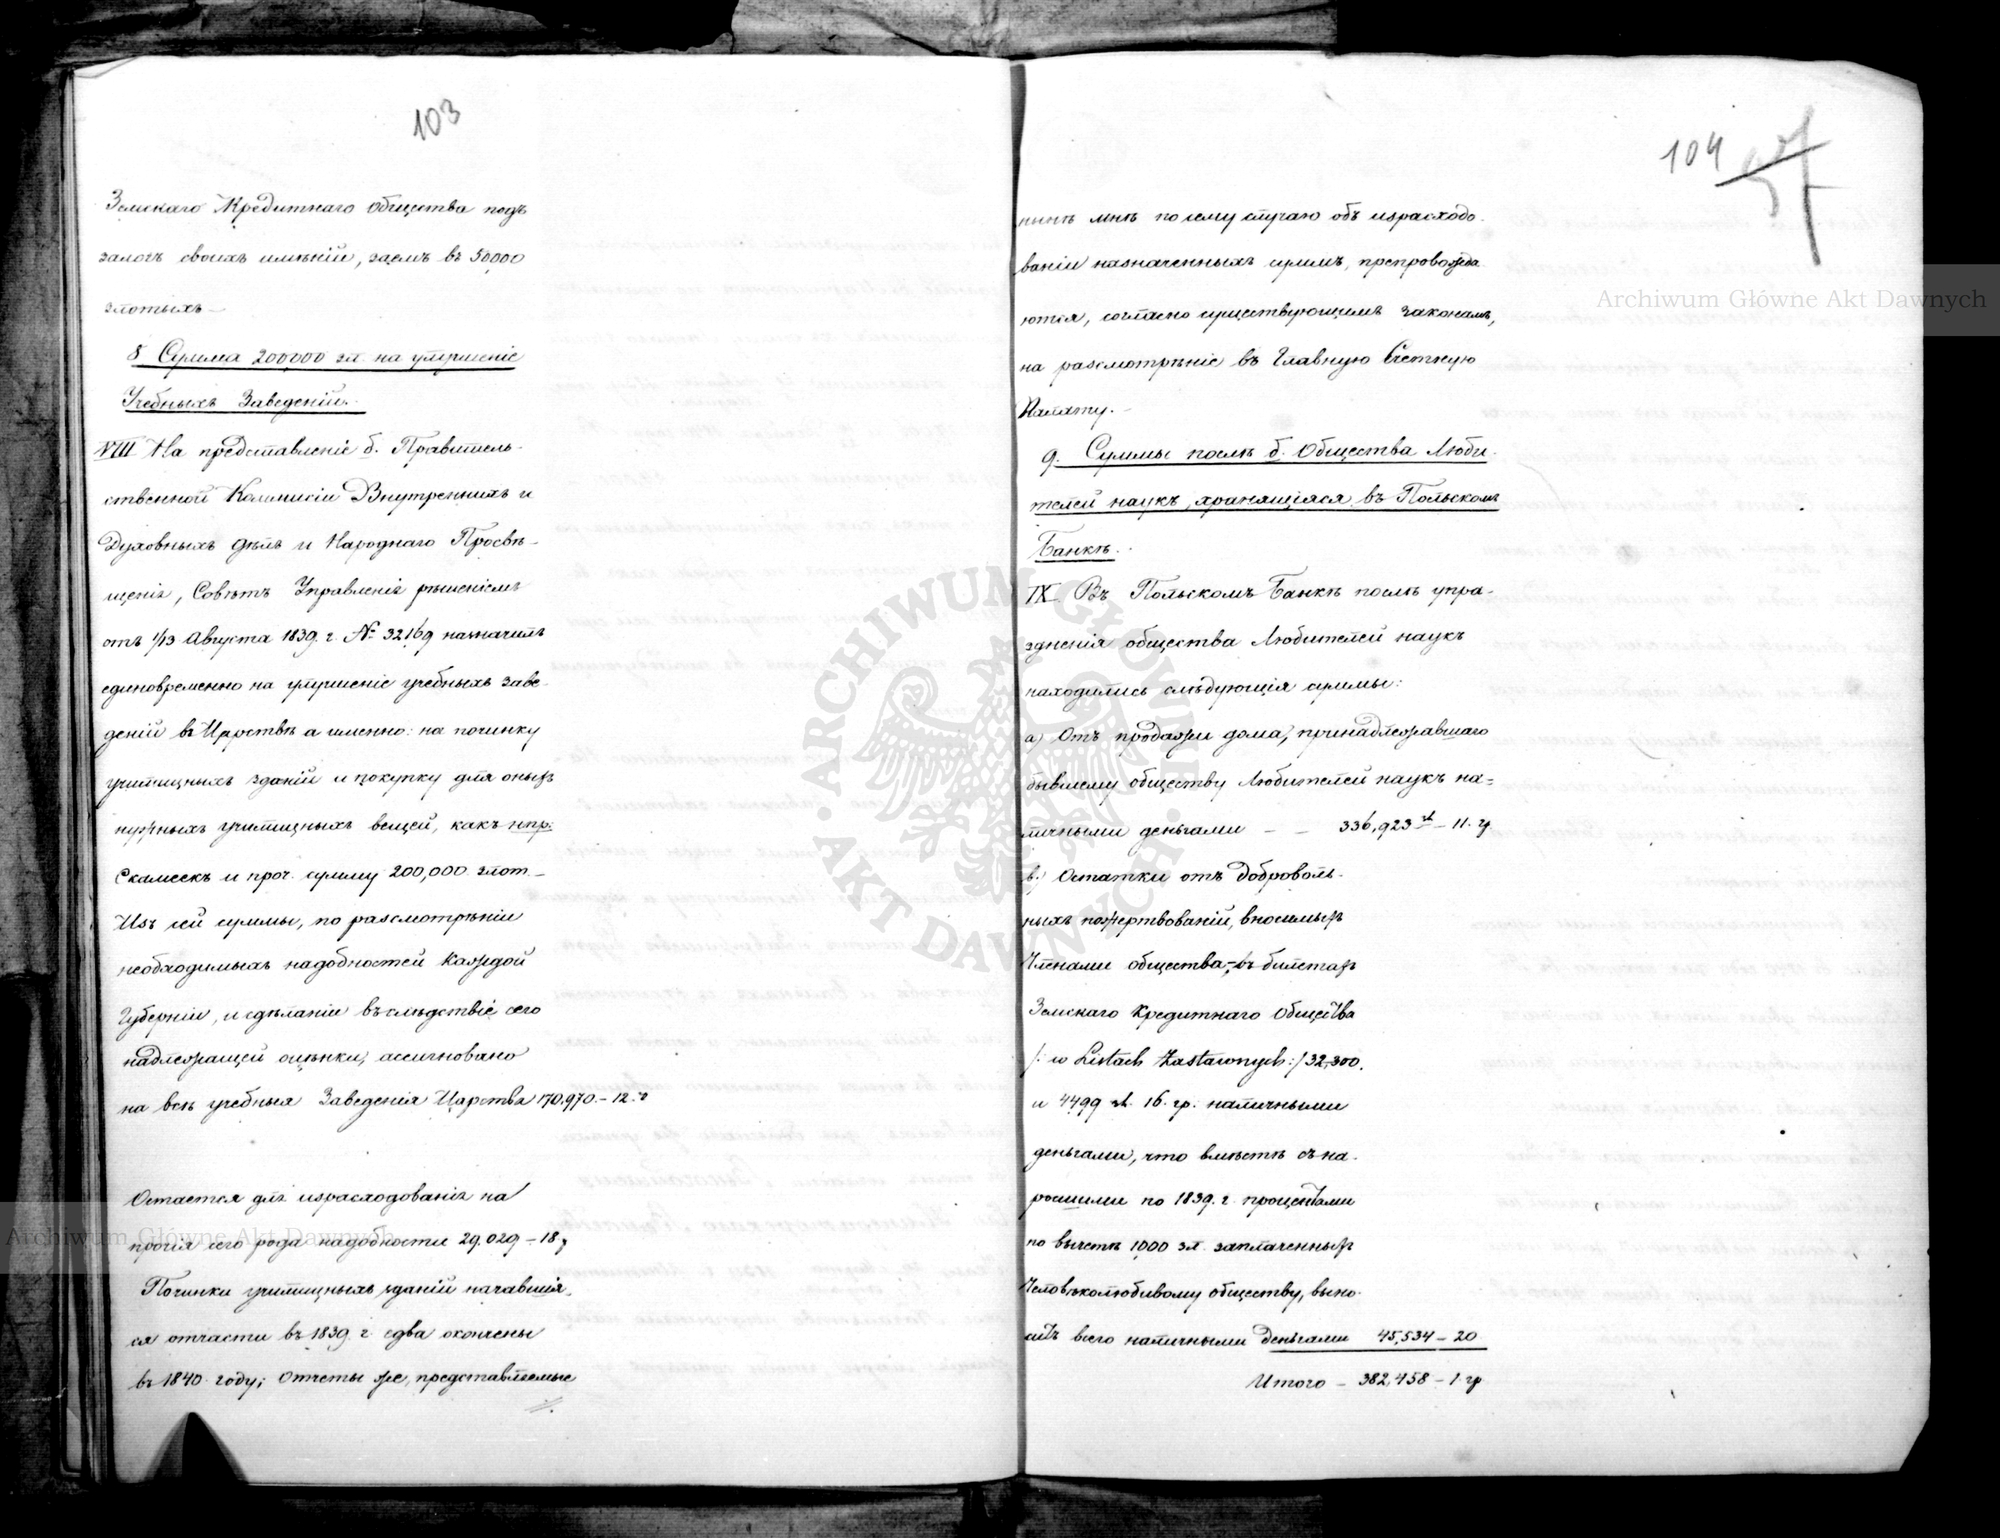 103
Земскаго Кредитнаго Общества подъ
залогъ своихъ имѣній, заемъ въ 50,000
злотыхъ –
8 Сумма 200,000 зл. на улучшеніе
Учебныхъ Заведеній.
VIII На представленіе б. Правитель-
ственной Коммисіи Внутреннихъ и
Духовныхъ дѣлъ и Народнаго Просвѣ-
щенія, Совѣтъ Управленія рѣшеніемъ
отъ 1/13 Августа 1839. г. № 32169 назначилъ
единовременно на улучшеніе учебныхъ заве-
деній въ Царствѣ а именно: на починку
училищныхъ зданій и покупку для оныхъ
нужныхъ училищныхъ вещей, какъ нпр:
Скамеекъ и проч. сумму 200,000 злот. –
Изъ сей суммы, по разсмотрѣніи
необходимыхъ надобностей каждой
Губерніи, и сдѣланіи въ слѣдствіе сего
надлежащей оцѣнки, ассигновано
на всѣ учебныя Заведенія Царства 170,970. – 12. г
Остается для израсходованія на
прочія сего рода надобности 29,029 – 18,
Починки училищныхъ зданій начавшія-
ся отчасти въ 1839. г. едва окончены
въ 1840 году; Отчеты же, представляемые
104
нинѣ мнѣ по сему случаю объ израсходо-
ваніи назначенныхъ суммъ, препровожда-
ются, согласно существующимъ законамъ,
на разсмотрѣніе въ Главную Счетную
Палату. –
9. Суммы послѣ б. Общества Люби-
телей наукъ, хранящіяся въ Польскомъ
Банкѣ.
IX. Въ Польскомъ Банкѣ послѣ упра-
зднeнія общества Любителей наукъ
находились слѣдующія суммы:
а) Отъ продажи дома, принадлежавшаго
бывшему обществу Любителей наукъ на-
личными деньгами – – 336,923 zł – 11. гр.
в.) Остатки отъ доброволь-
ныхъ пожертвованій, вносимыхъ
Членами общества, – въ билетахъ
Земскаго Кредитнаго Общества
/: w Listach Zastawnych :/ 32,300.
и 4499 zł. 16. гр. наличными
деньгами, что вмѣстѣ съ на-
росшими по 1839. г. процентами
по вычетѣ 1000 зл. заплаченныхъ
Человѣколюбивому обществу, выно-
ситъ всего наличными деньгами 45,534 – 20
Итого – 382,458 – 1. гр
Archiwum Główne Akt Dawnych
Archiwum Główne Akt Dawnych
ARCHIWUM GŁÓWNE AKT DAWNYCH